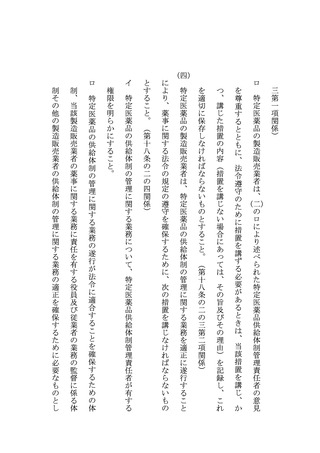 三第一項関係）
ロ　特定医薬品の製造販売業者は、(二)のロにより述べられた特定医薬品供給体制管理責任者の意見
を尊重するとともに、法令遵守のために措置を講ずる必要があるときは、当該措置を講じ、か
つ、講じた措置の内容（措置を講じない場合にあっては、その旨及びその理由）を記録し、これ
を適切に保存しなければならないものとすること。（第十八条の二の三第二項関係）
(四)　特定医薬品の製造販売業者は、特定医薬品の供給体制の管理に関する業務を適正に遂行すること
により、薬事に関する法令の規定の遵守を確保するために、次の措置を講じなければならないもの
とすること。（第十八条の二の四関係）
イ　特定医薬品の供給体制の管理に関する業務について、特定医薬品供給体制管理責任者が有する
権限を明らかにすること。
ロ　特定医薬品の供給体制の管理に関する業務の遂行が法令に適合することを確保するための体
制、当該製造販売業者の薬事に関する業務に責任を有する役員及び従業者の業務の監督に係る体
制その他の製造販売業者の供給体制の管理に関する業務の適正を確保するために必要なものとし